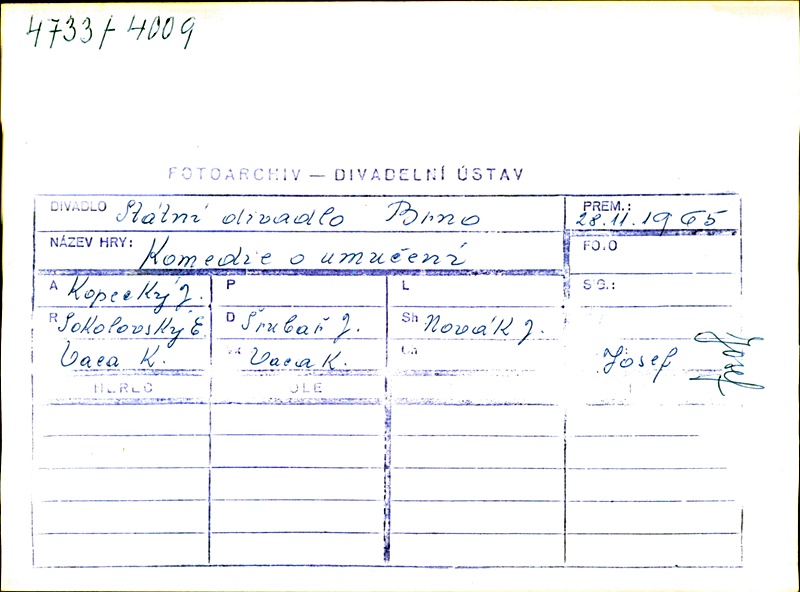 4733/-4009
FOTOARCHIV — DIVADELNÍ ÚSTAV
DIVADLO Státní divadlo Brno
PREM.: 28.11.1965
NÁZEV HRY: Komedie o umučení
FOTO
A Kopecký J.
P
L
SG.:
R Sokolovský E.
D Šrubař J.
Sh Novák J.
Vaca K.
Vaca K.
Josef
Josef
HEREC